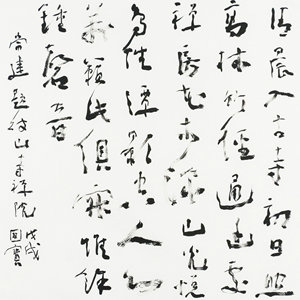 清晨入古寺初日照
高林竹徑通幽處
禪房花木深山光悅
鳥性潭影空人心
萬籟此俱寂惟餘
鍾磬音
常建題破山寺禪院
戊戌